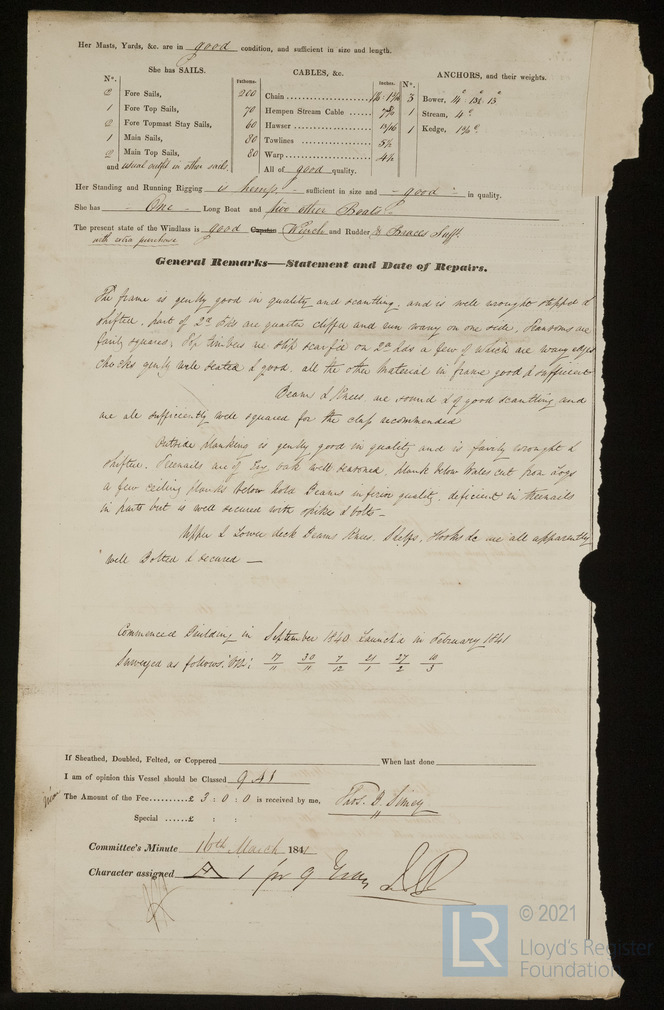 Her Masts, Yards, &c. are in good condition, and sufficient in size and length.
She has SAILS.
CABLES, &c.
ANCHORS, and their weights.
N°.
Fathoms.
Inches.
N°.
2 Fore Sails,
1 Fore Top Sails,
2 Fore Topmast Stay Sails,
1 Main Sails,
2 Main Top Sails,
and usual outfit in other sails
200 Chain
70 Hempen Stream Cable
60 Hawser
80 Towlines
80 Warp
All of good quality.
3 Bower,
1 Stream,
1 Kedge,
Her Standing and Running Rigging is hemp sufficient in size and good in quality.
She has One Long Boat and five other Boats
The present state of the Windlass is good Capstan Winch and Rudder & Braces Sufft.
with extra purchase
General Remarks—Statement and Date of Repairs.
The frame is genlly good in quality and scantling, and is well wrought stopped &
shifted. part of 2d are quarter cliffed and run wany on one side, are
fairly squared. Top timbers are slip scarfed on 2d a few of which are wany edged
chocks genlly well seated & good, all the other material in frame good & sufficient
Beams & Knees are sound & of good scantling and
are all sufficiently well squared for the class recommended
Outside planking is genlly good in quality and is fairly wrought &
shifted. Treenails are of oak well seasoned, plank below Wales cut from Logs
a few ceiling planks below hold Beams inferior quality. deficient in treenails
in parts but is well secured with spikes & bolts—
Upper & Lower deck Beams Knees, Shelfs, Hooks &c are all apparently
well Bolted & secured —
Commenced Building in September 1840 Launch'd in February 1841
Surveyed as follows. Viz: 17/11 30/11 7/12 21/1 27/2 10/3
If Sheathed, Doubled, Felted, or Coppered When last done
I am of opinion this Vessel should be Classed 9 A 1
The Amount of the Fee..........£ 3 : 0 : 0 is received by me, Thos. B. Simey
Special ......£ : :
Committee's Minute 16th March 1841
Character assigned A 1 for 9 Years
LR
© 2021
Lloyd's Register
Foundation